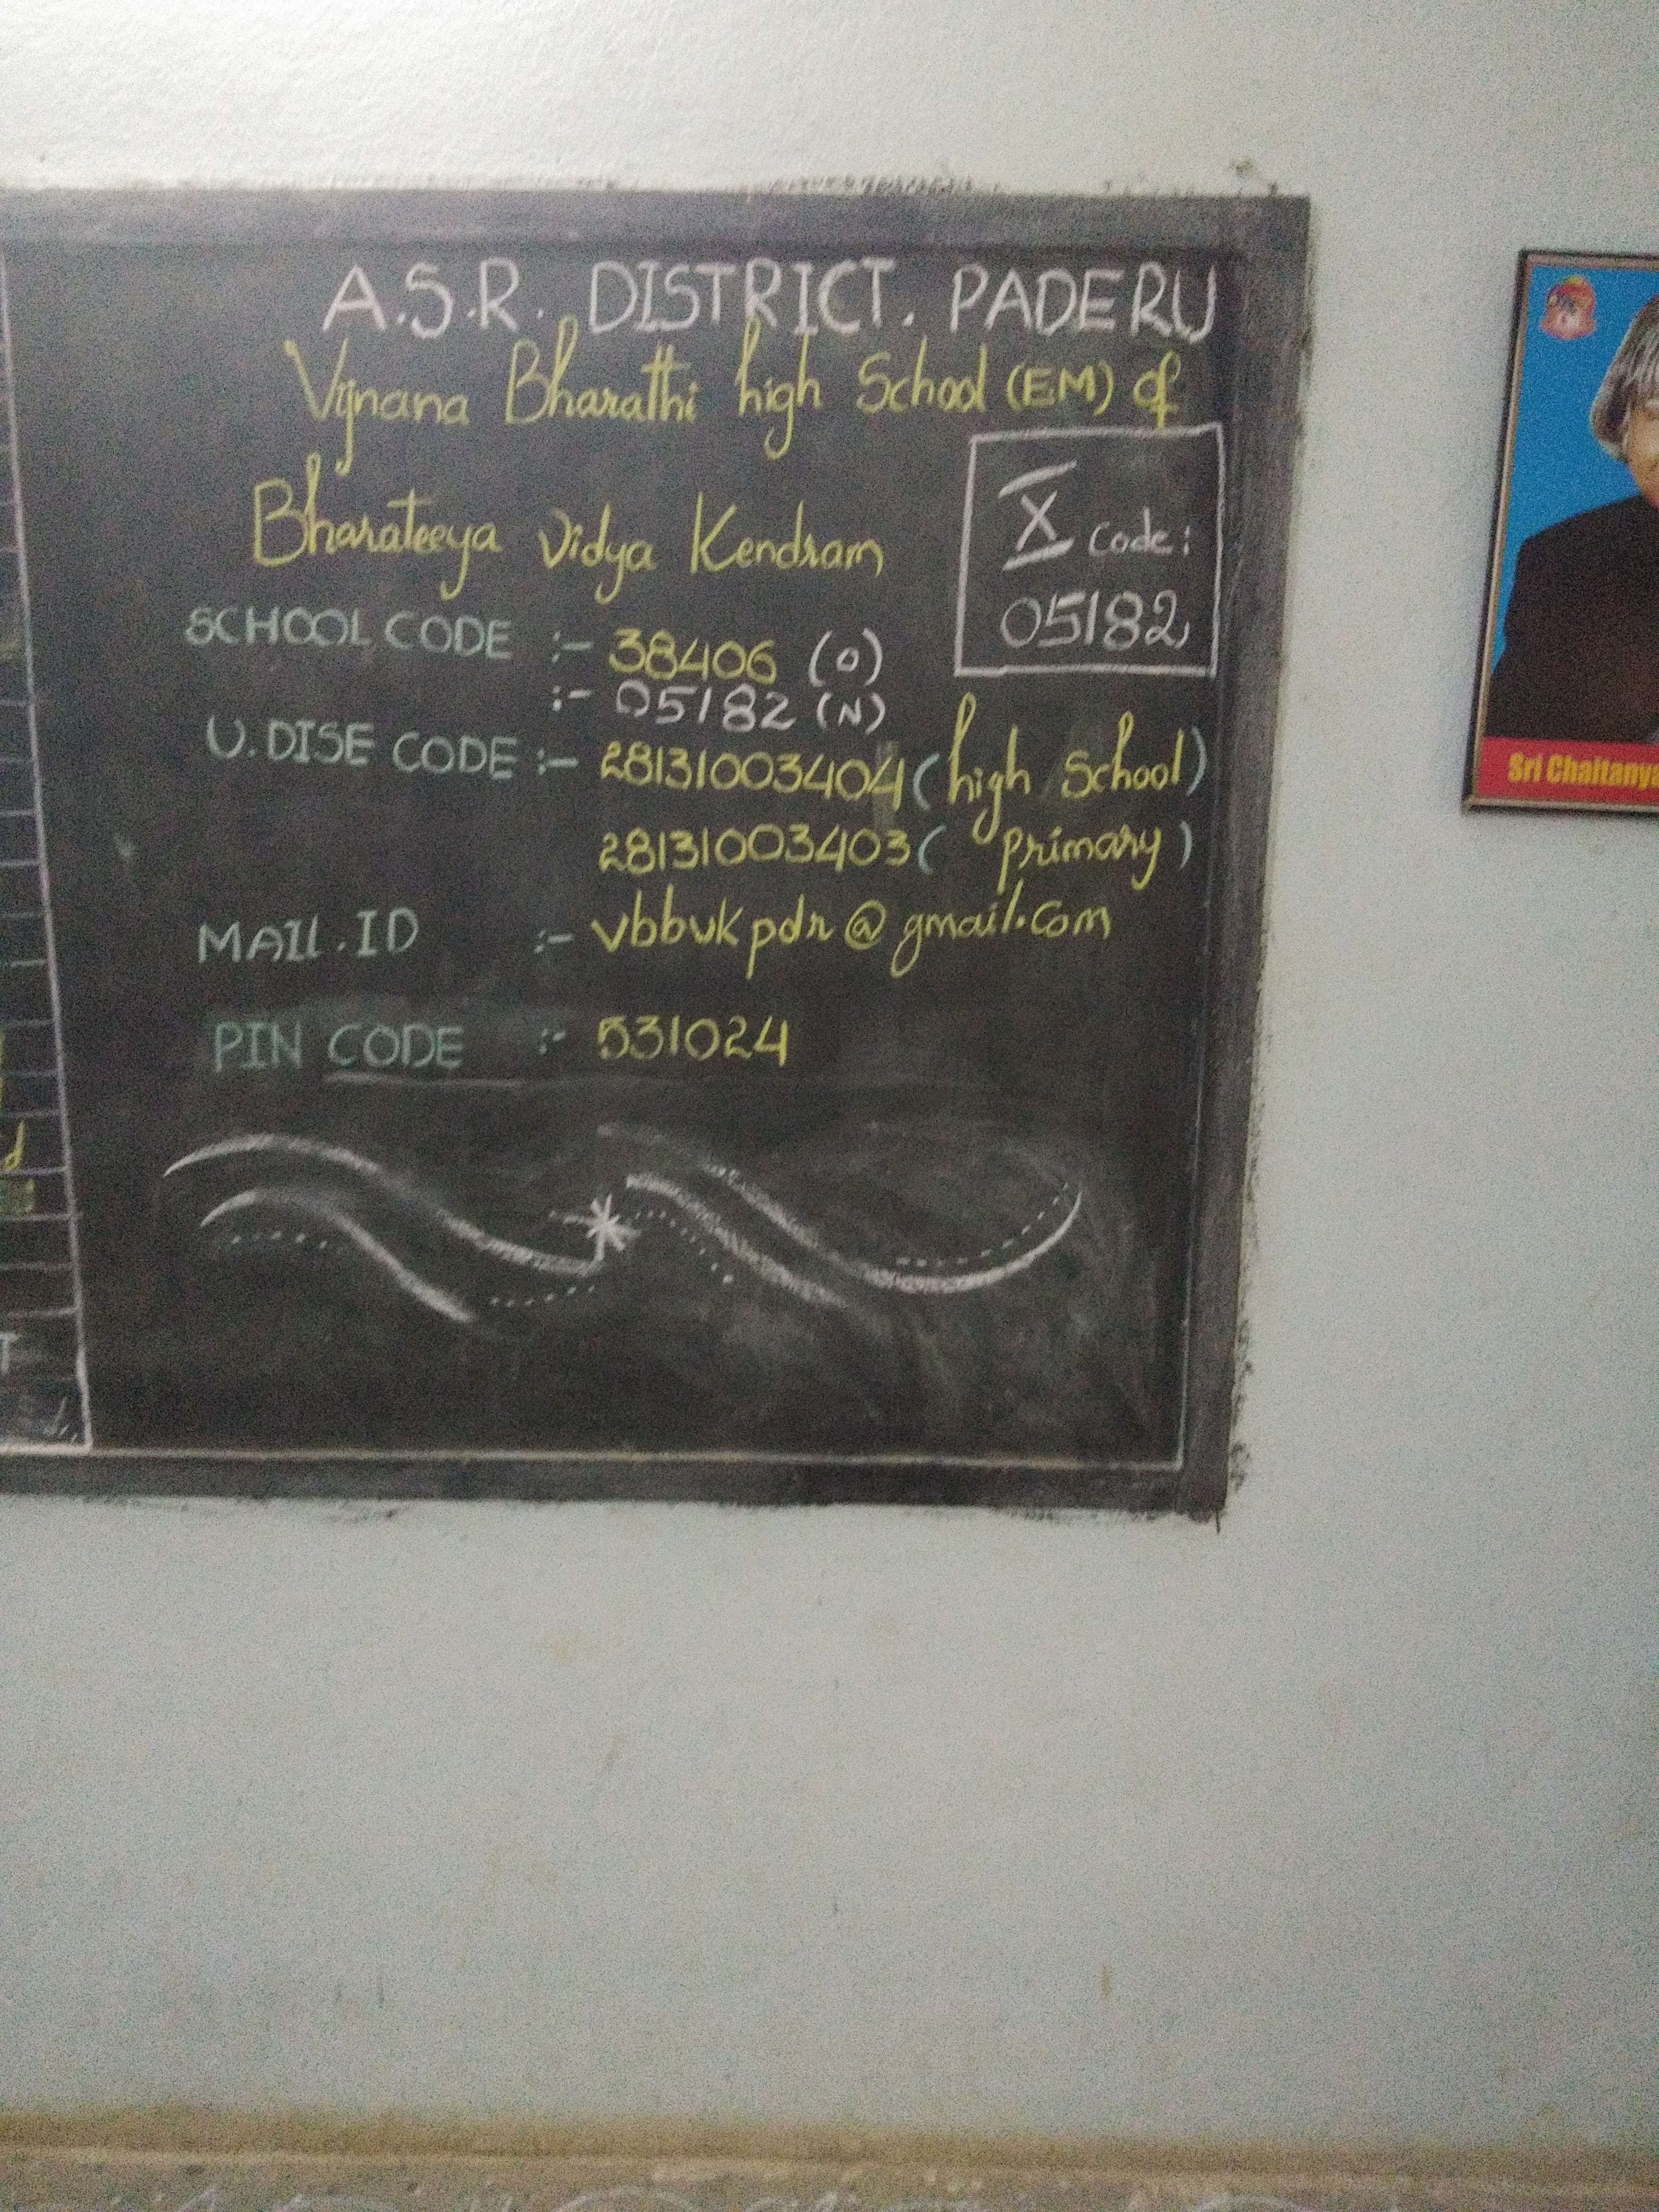 A.S.R. DISTRICT. PADERU
Vijnana Bharathi high School (EM) of
Bharateeya Vidya Kendram
X Code:
05182
SCHOOL CODE :- 38406 (O)
:- 05182 (N)
U.DISE CODE :- 28131003404 (high School)
28131003403 (Primary)
MAIL.ID :- vbbvkpdr@gmail.com
PIN CODE :- 531024
d
T
Sri Chaitanya